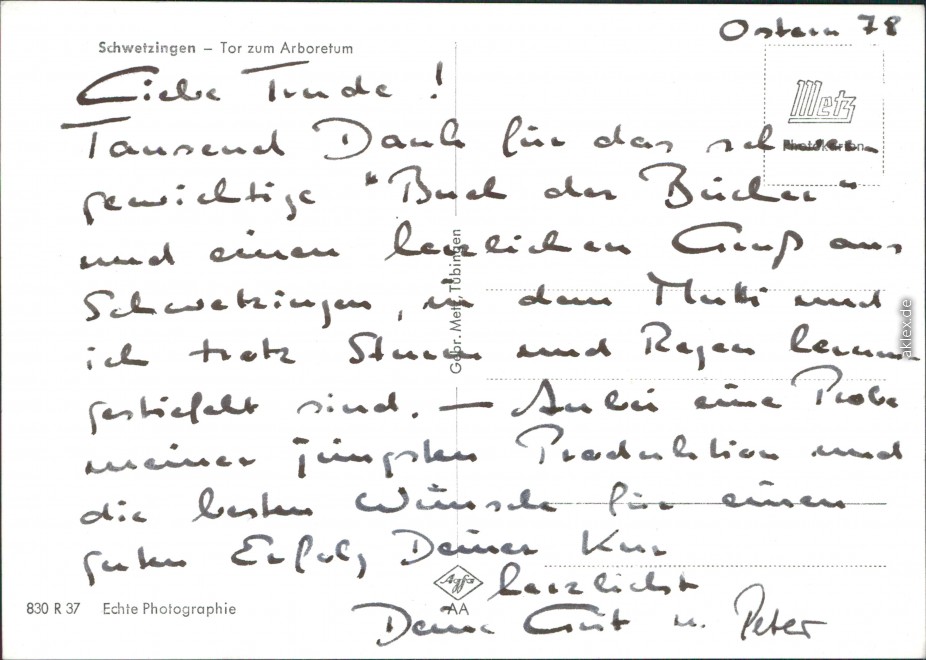 Ostern 78
Schwetzingen – Tor zum Arboretum
Metz
Photokarton
Liebe Trude!
Tausend Dank für das schwer
gewichtige "Buch der Bücher"
und einen herzlichen Gruß aus
Schwetzingen, in dem Mutti und
ich trotz Sturm und Regen herum
gestiefelt sind. — Anbei eine Probe
meiner jüngsten Produktion und
die besten Wünsche für einen
guten Erfolg Deiner Kur
herzlichst
Deine Gut u. Peter
Gebr. Metz, Tübingen
Agfa
AA
830 R 37 Echte Photographie
aklex.de